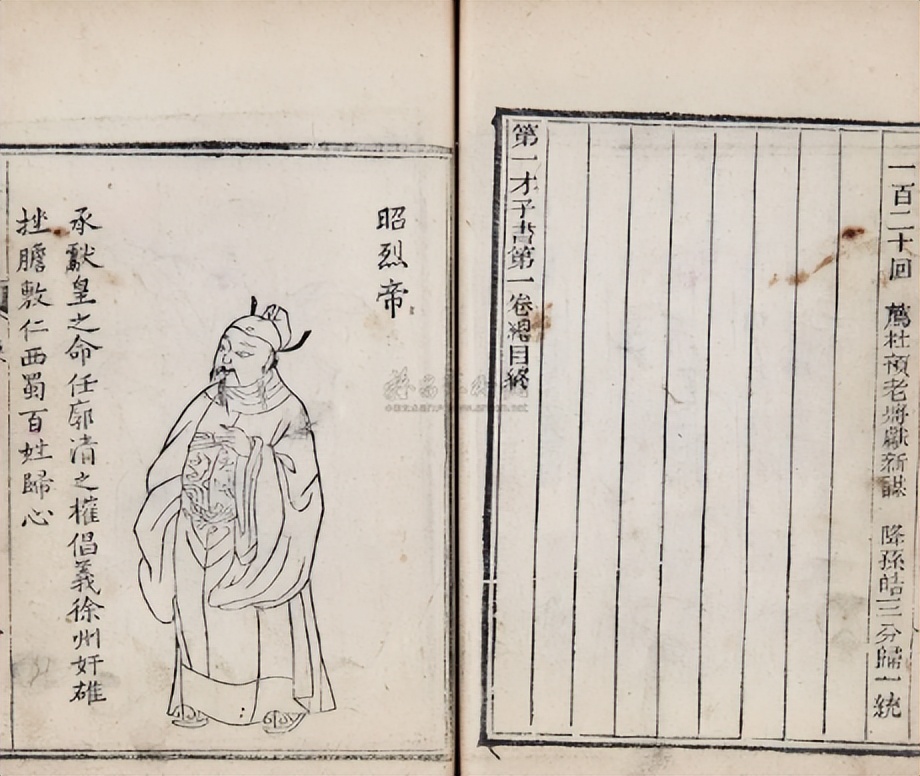 一百二十回 薦杜預老將獻新謀 降孫皓三分歸一統
第一才子書第一卷總目終
昭烈帝
承獻皇之命任廓清之權倡義徐州奸雄
挫膽敷仁西蜀百姓歸心